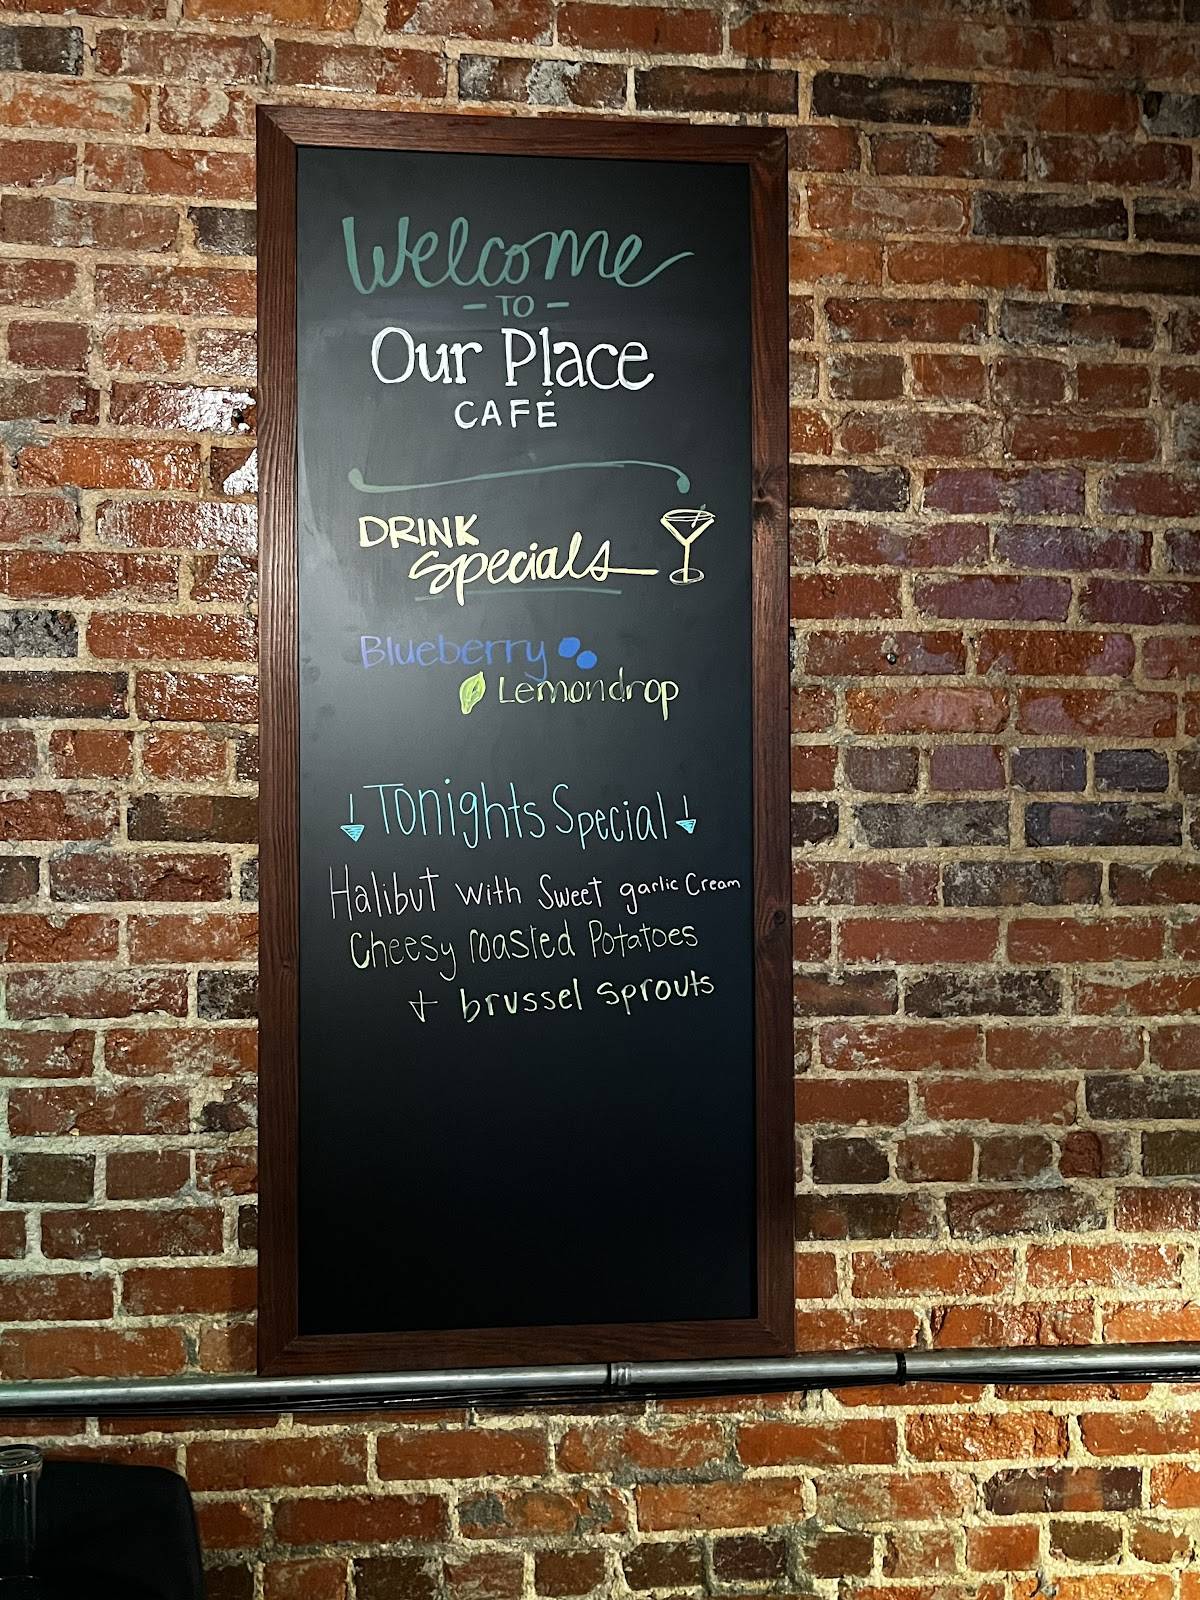 Welcome
- TO -
Our Place
CAFÉ
DRINK
Specials
Blueberry
Lemondrop
Tonights Special
Halibut with Sweet garlic Cream
Cheesy roasted Potatoes
+ brussel sprouts